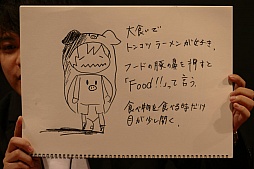 大食いで
トンコツラーメンが好き。
フードの豚の鼻を押すと
「Food!!」って言う。
食べ物を食べる時だけ
目が少し開く。